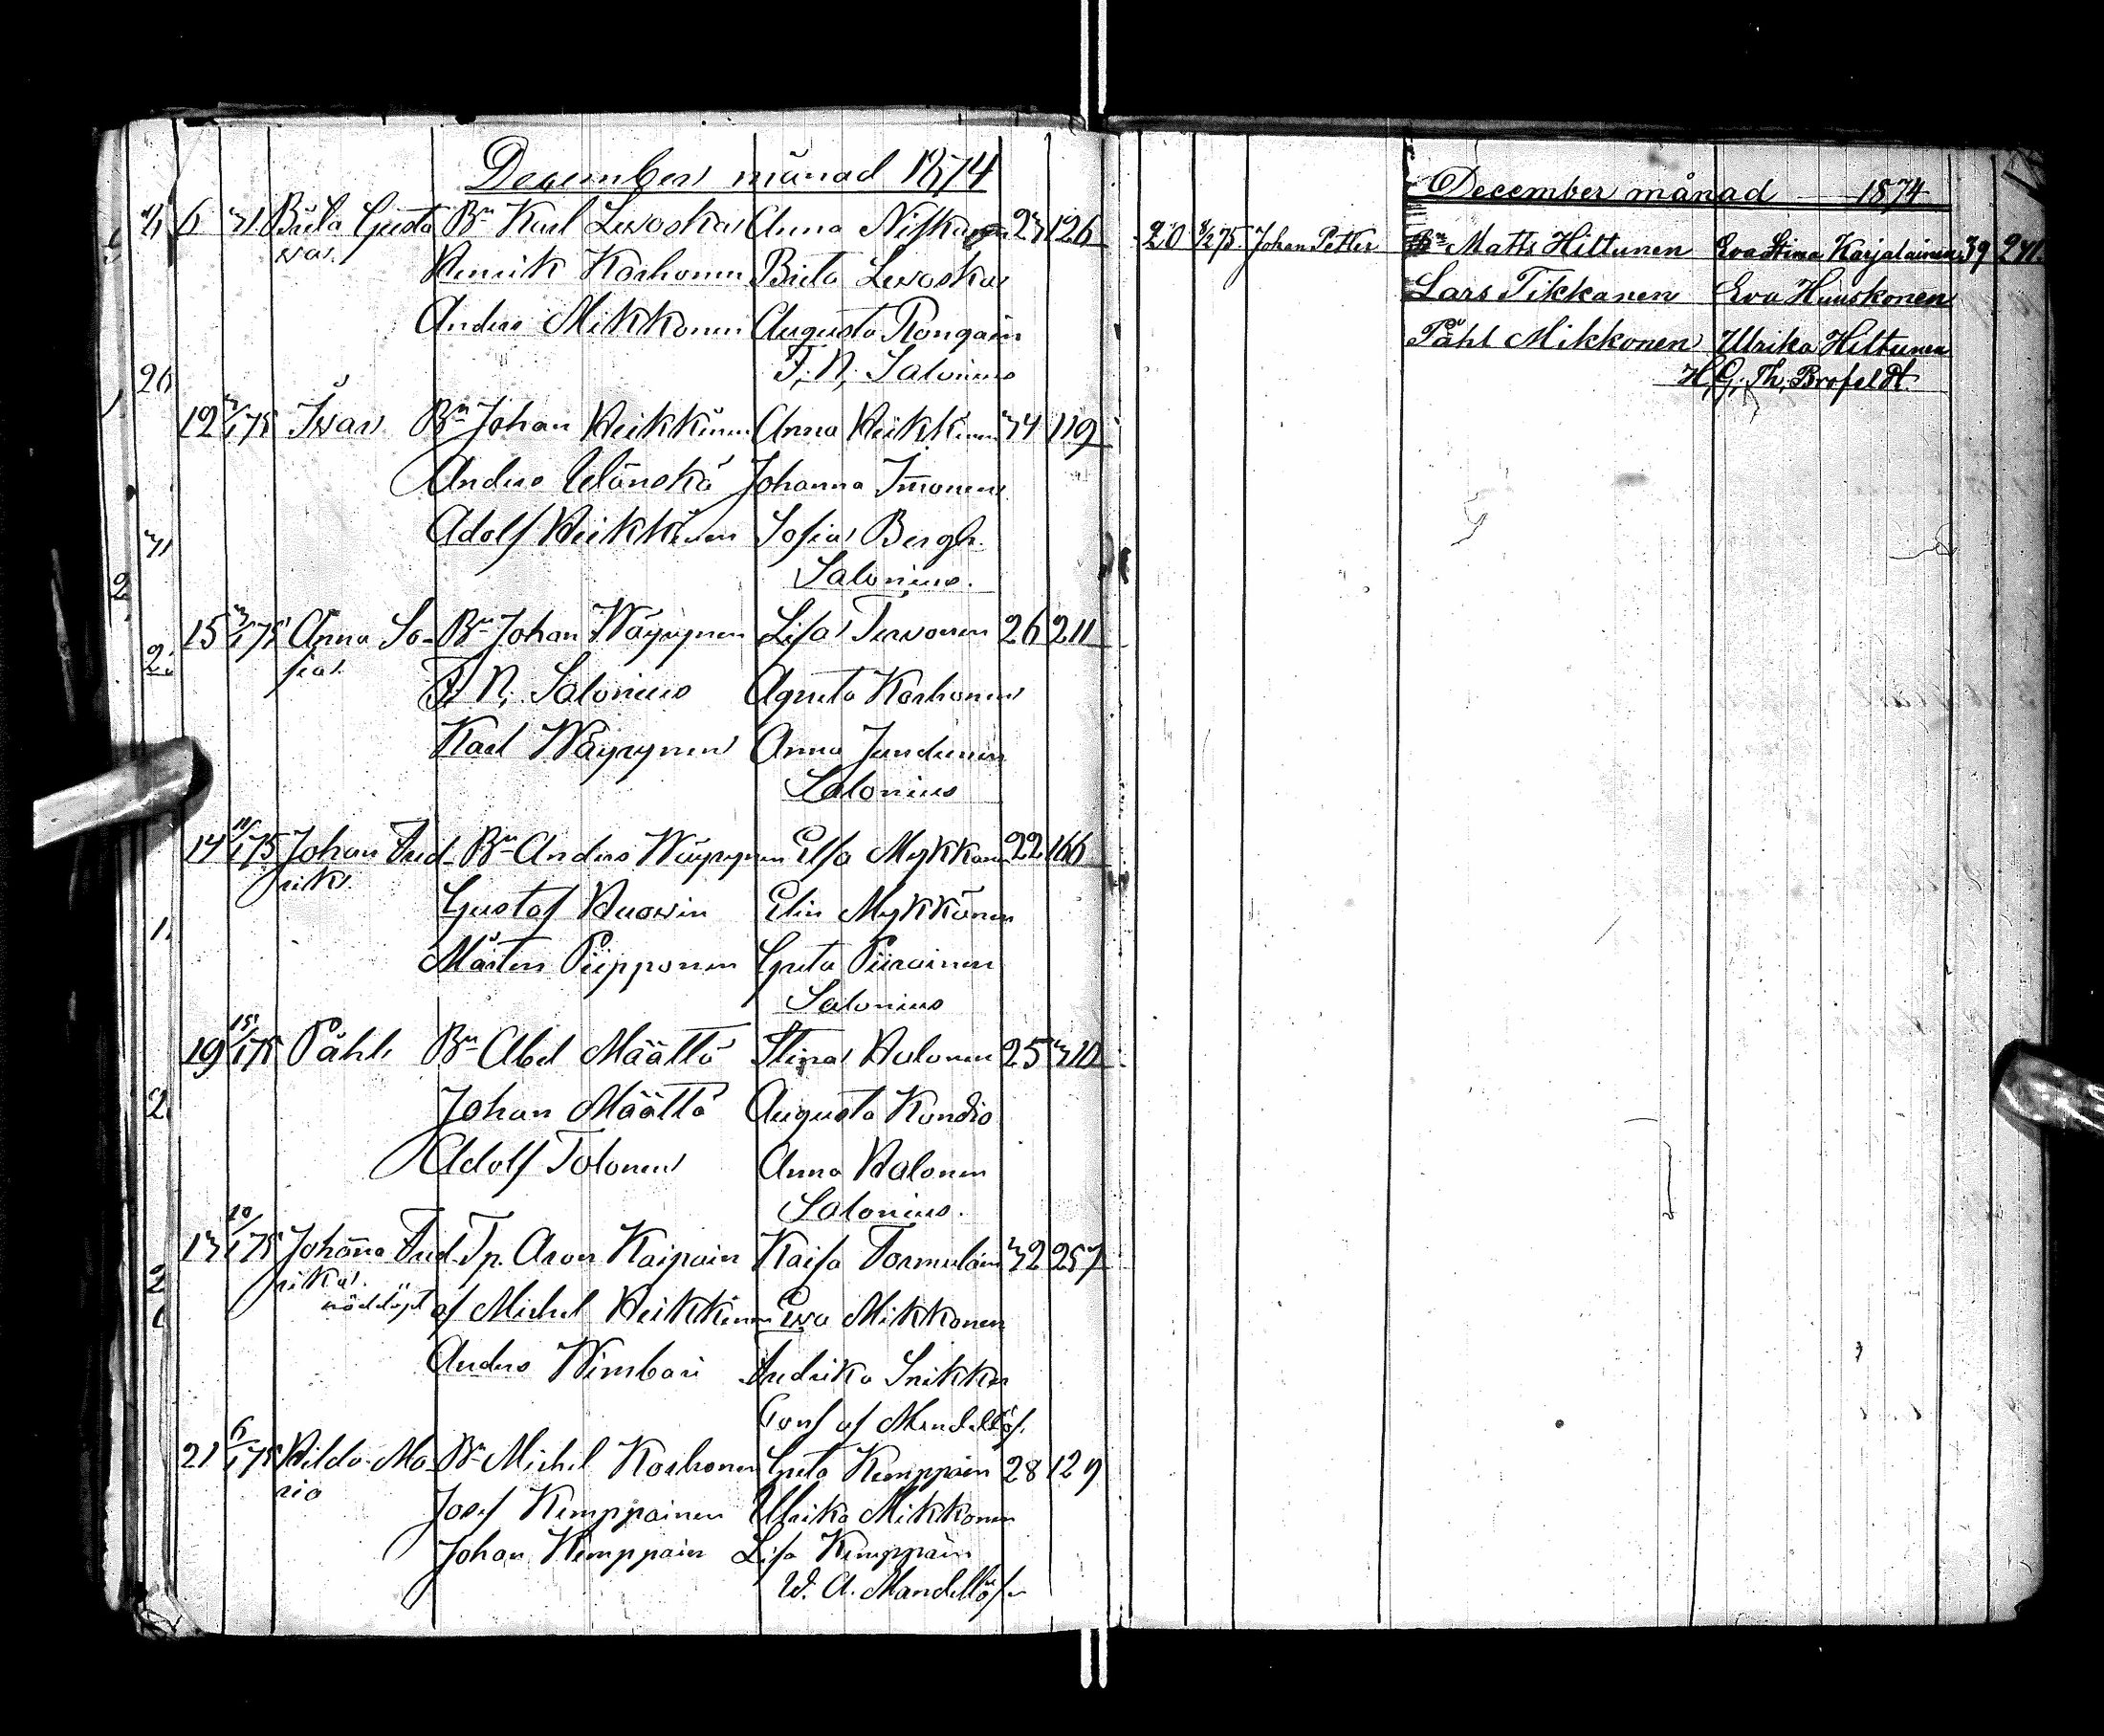 December månad 1874
6 31 Brita Gusta Bn Karl Lewoska Anna Niskanen 23 126
va. Henrik Korhonen Brita Lewoska
Anders Mikkonen Augusta Rongain
F. N. Salonius
26
12 3/1 75 Iwar Bn Johan Heikkinen Anna Heikkinen 34 119
Anders Wänskä Johanna Immonen
Adolf Heikkinen Sofia Bergh.
31
Salonius.
2
15 3/1 75 Anna So- Bn Johan Wäyrynen Lisa Tervonen 26 211
fia. F. N. Salonius Agneta Korhonen
Karl Wäyrynen Anna Jundunen
Salonius
14 11/1 75 Johan Fred- Bn Anders Wäyrynen Elsa Mykkänen 22 166
rik. Gustaf Huovin Elin Mykkönen
Mårten Piipponen Greta Piirainen
Salonius
19 15/1 75 Påhl Bn Abel Määttä Stina Halonen 25 310
2 Johan Määttä Augusta Kondio
Adolf Tolonen Anna Halonen
Salonius.
13 10/1 75 Johanna Fred- Tp. Aron Kaipain Kaisa Tormulain 32 257
rika.
nöddöpt af Michel Heikkinen Ewa Mikkonen
Anders Wimbari Fredrika Snikker
Conf af Mandellöf.
21 6/1 75 Hilda Ma- Bn Michel Korhonen Greta Kemppain 28 129
ria Josef Kemppainen Ulrika Mikkonen
Johan Kemppain Lisa Kemppain
W. A. Mandellöf
December månad 1874
20 8/2 75. Johan Petter Bn Matts Hiltunen Eva Stina Karjalainen 39 241.
Lars Tikkanen Eva Huuskonen
Påhl Mikkonen Ulrika Hiltunen
H. G. Th. Brofeldt.